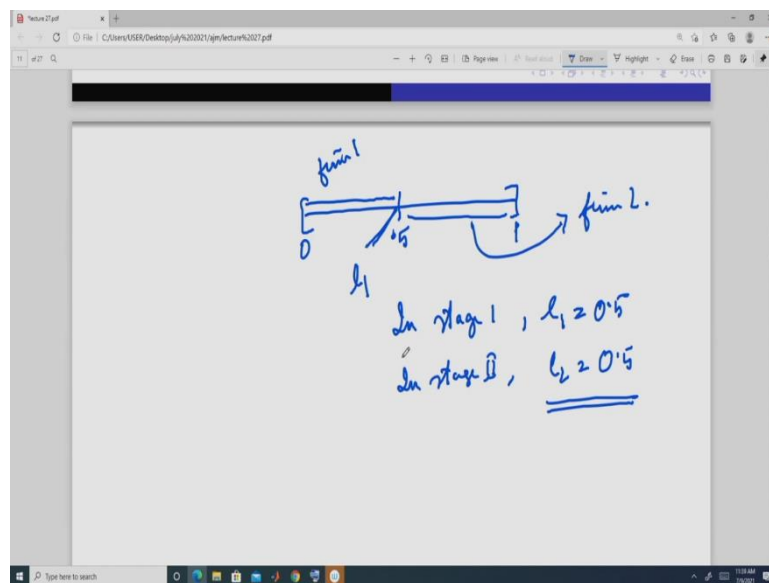 lecture 27.pdf
File | C:/Users/USER/Desktop/july%202021/ajm/lecture%2027.pdf
11 of 27
Page view
Read aloud
Draw
Highlight
Erase
firm 1
0
.5
1
firm 2.
l1
In stage 1, l1 = 0.5
In stage II, l2 = 0.5
Type here to search
11:59 AM
7/9/2021